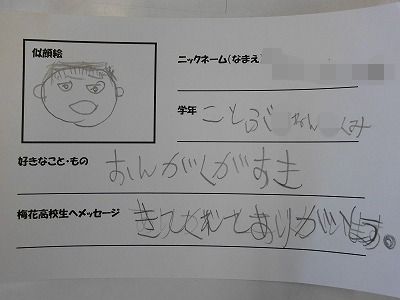 似顔絵
ニックネーム(なまえ)
学年 ことぶ なん くみ
好きなこと・もの おんがくがすき
梅花高校生へメッセージ きてくれてありがとう。